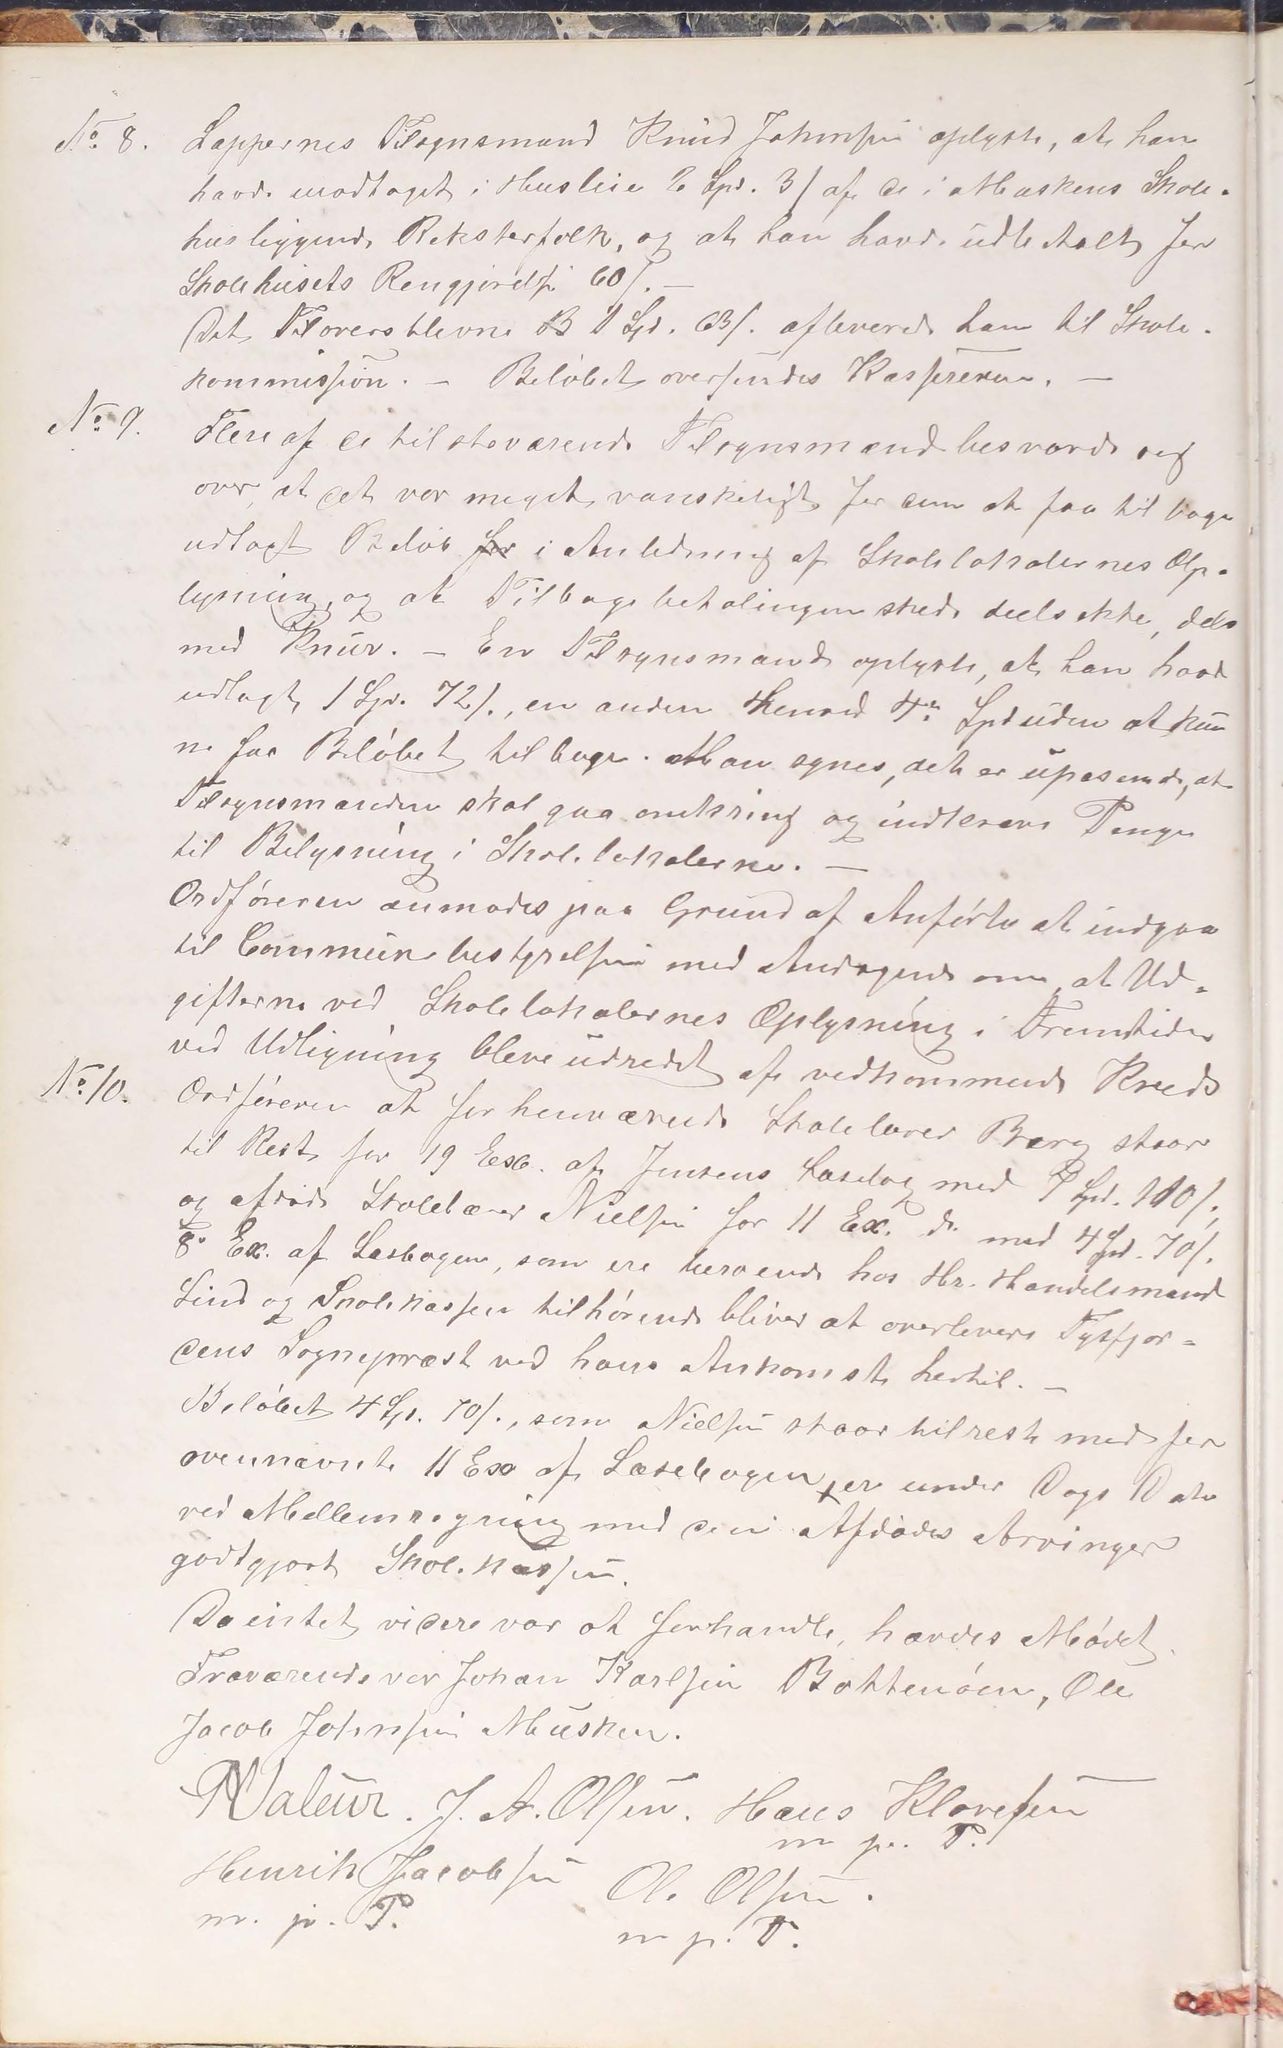 No. 8. Lappernes Tilsynsmand Knud Johnsen oplyste, at han
havde modtaget i Husleie 2 Spd. 3 s af de i Muskens Skole-
hus liggende Reksterfolk, og at han havde udbetalt for
Skolehusets Rengjørelse 60 s. —
Det Tiloversblevne 1 Spd. 63 s. afleverede han til Skole-
kommission. — Beløbet oversendes Kassereren. —
No. 9. Flere af de tilstæværende Tilsynsmænd besværede sig
over, at det var meget vanskeligt for dem at faa tilbage
udlagt Beløb i Anledning af Skolelokalernes Op-
lysning, og at Tilbagebetalingen skede deels ikke, dels
med Knur. — En Tilsynsmand oplyste, at han havde
udlagt 1 Spd. 72 s., en anden Spd uden at kun
ne faa Beløbet tilbage. Man synes, det er upassende, at
Tilsynsmanden skal gaa omkring og indkræve Penge
til Belysning i Skolelokalerne. —
Ordføreren anmodes paa Grund af Anførte at indgaa
til Communebestyrelsen med Andragende om, at Ud-
gifterne ved Skolelokalernes Oplysning i Fremtiden
ved Udligning bleve udredet af vedkommende Kreds
No. 10. Ordføreren at forhenværende Skolelærer Berg staar
til Rest for 19 Exe. af Jensens Læsebog med Spd. 110 s.,
og afdøde Skolelærer Nielsen for 11 Ex. do med 4 Spd. 70 s.
8 Ex. af Læsebogen, som ere beroende hos Hr. Handelsmand
Lind og Skolekassen tilhørende bliver at overlevere Tysfjor-
dens Sognepræst ved hans Ankomst hertil. —
Beløbet 4 Spd. 70 s., som Nielsen staar tilrest med for
ovennævnte 11 Ex af Læsebogen, er under Dags Dato
ved Mellemregning med den Afdødes Arvinger
godtgjort Skolekassen.
Da intet videre var at forhandle, hævdes Mødet.
Fraværende var Johan Karlsen Bottenøen, Ole
Jacob Johnsen Musken.
RWaleur. J. A. Olsen. Hans Klavesen
m p. P.
Henrik Jacobsen Ole Olsen.
m. p. P. m p. P.